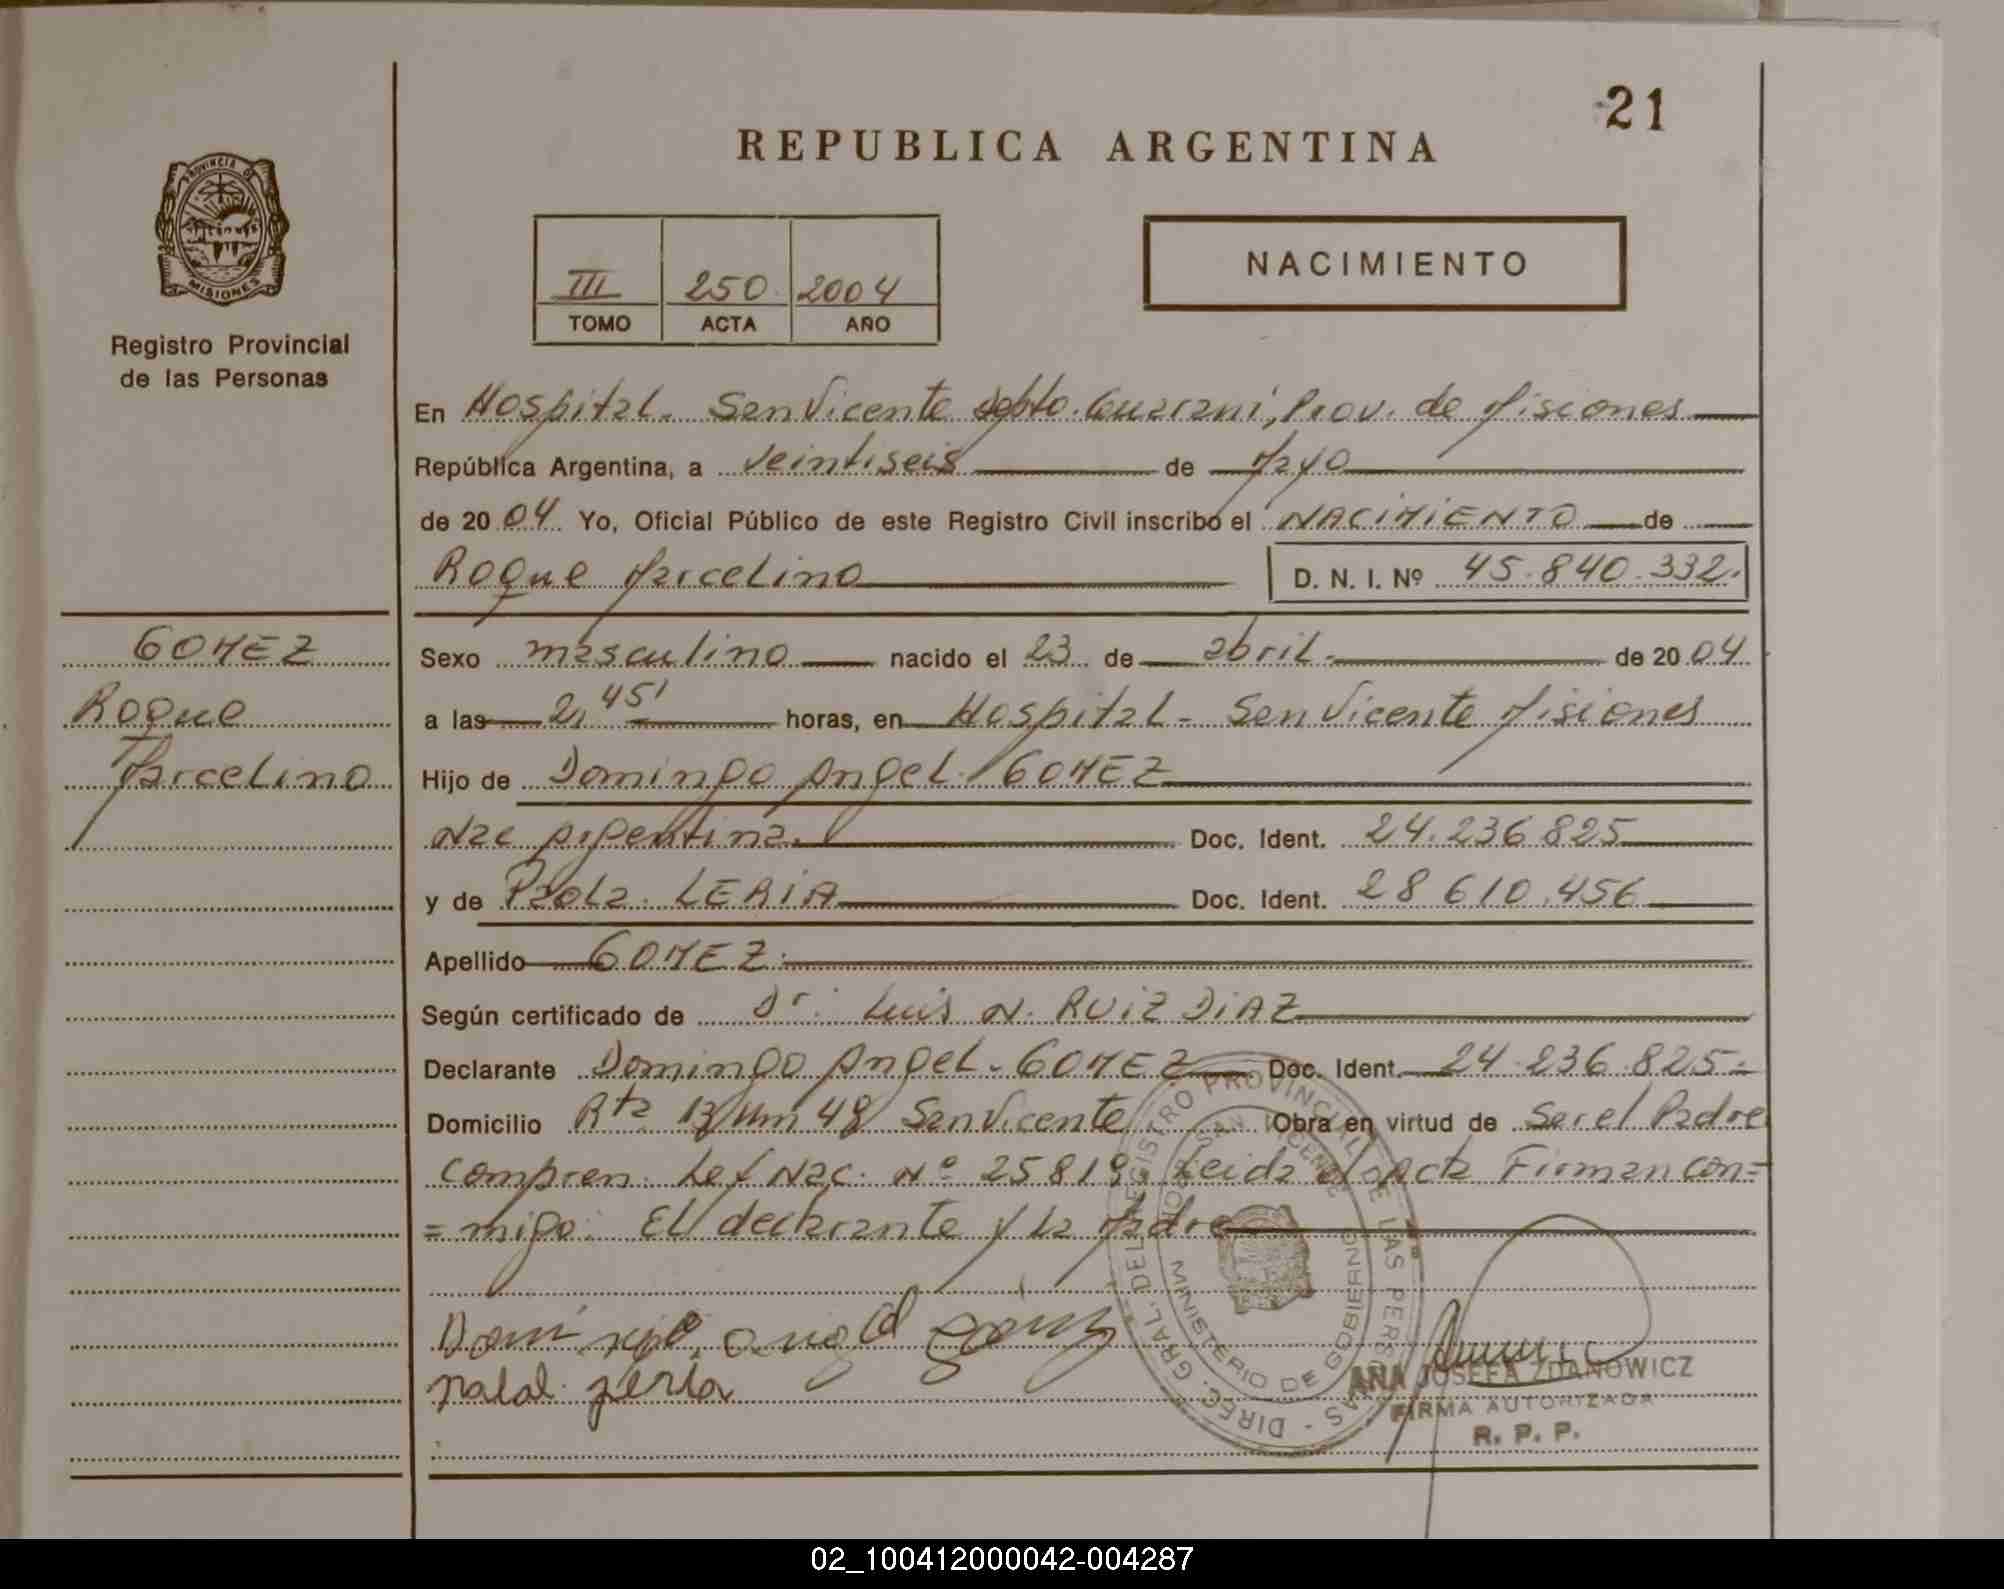 21
REPUBLICA ARGENTINA
PROVINCIA DE
MISIONES
Registro Provincial
de las Personas
NACIMIENTO
III 250 2004
TOMO ACTA AÑO
En Hospital - San Vicente Depto. Guarani, Prov. de Misiones
República Argentina, a Veintiseis de Mayo
de 2004 Yo, Oficial Público de este Registro Civil inscribo el NACIMIENTO de
Roque Marcelino D. N. I. Nº 45.840.332.
GOMEZ
Roque
Marcelino
Sexo masculino nacido el 23 de abril de 2004
a las 2,45' horas, en Hospital - San Vicente Misiones
Hijo de Domingo Angel GOMEZ
Nac Argentina. Doc. Ident. 24.236.825
y de Paola LERIA Doc. Ident. 28.610.456
Apellido GOMEZ
Según certificado de Dr. Luis N. RUIZ DIAZ
Declarante Domingo Angel - GOMEZ Doc. Ident. 24.236.825
Domicilio Rta 13 Km 48 San Vicente Obra en virtud de Ser el Padre
Compren. Ley Nac. Nº 25819. Leida el Acta Firman con=
=migo: El declarante y La Madre
Domingo angel gomez
ANA JOSEFA ZDANOWICZ
FIRMA AUTORIZADA
R. P. P.
DIREC. GRAL. DEL REGISTRO PROVINCIAL DE LAS PERSONAS
SAN VICENTE
MINISTERIO DE GOBIERNO
02_100412000042-004287